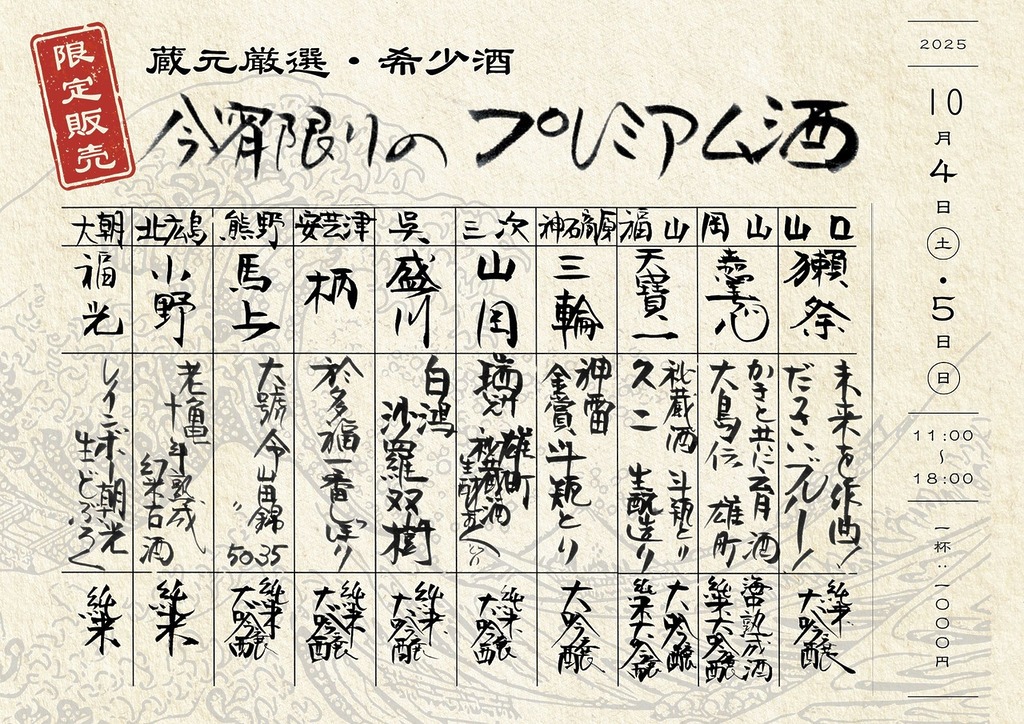 限定販売
蔵元厳選・希少酒
今宵限りの プレミアム酒
2025
10月4日(土)・5日(日)
11:00
〜
18:00
一杯:一〇〇〇円
山口
獺祭
未来を作曲!
だっさいブルー!
純米
大吟醸
岡山
嘉美心
かきと共に育月酒
大島伝 雄町
海中熟成酒
純米大吟醸
福山
天寶一
秘蔵酒 斗瓶とり
久二 生酛造り
大吟醸
純米大吟醸
神石高原
三輪
神雷
金賞斗瓶とり
大吟醸
三次
山岡
瑞冠 雄町
秘蔵酒
純米
大吟醸
呉
盛川
白鴻
沙羅双樹
純米
大吟醸
安芸津
柄
於多福
一番しぼり
純米
大吟醸
熊野
馬上
大號令 山田錦35
〃 50
純米
大吟醸
北広島
小野
老亀
十年熟成
純米古酒
純米
大朝
福光
レインボー朝光
生どぶろく
純米